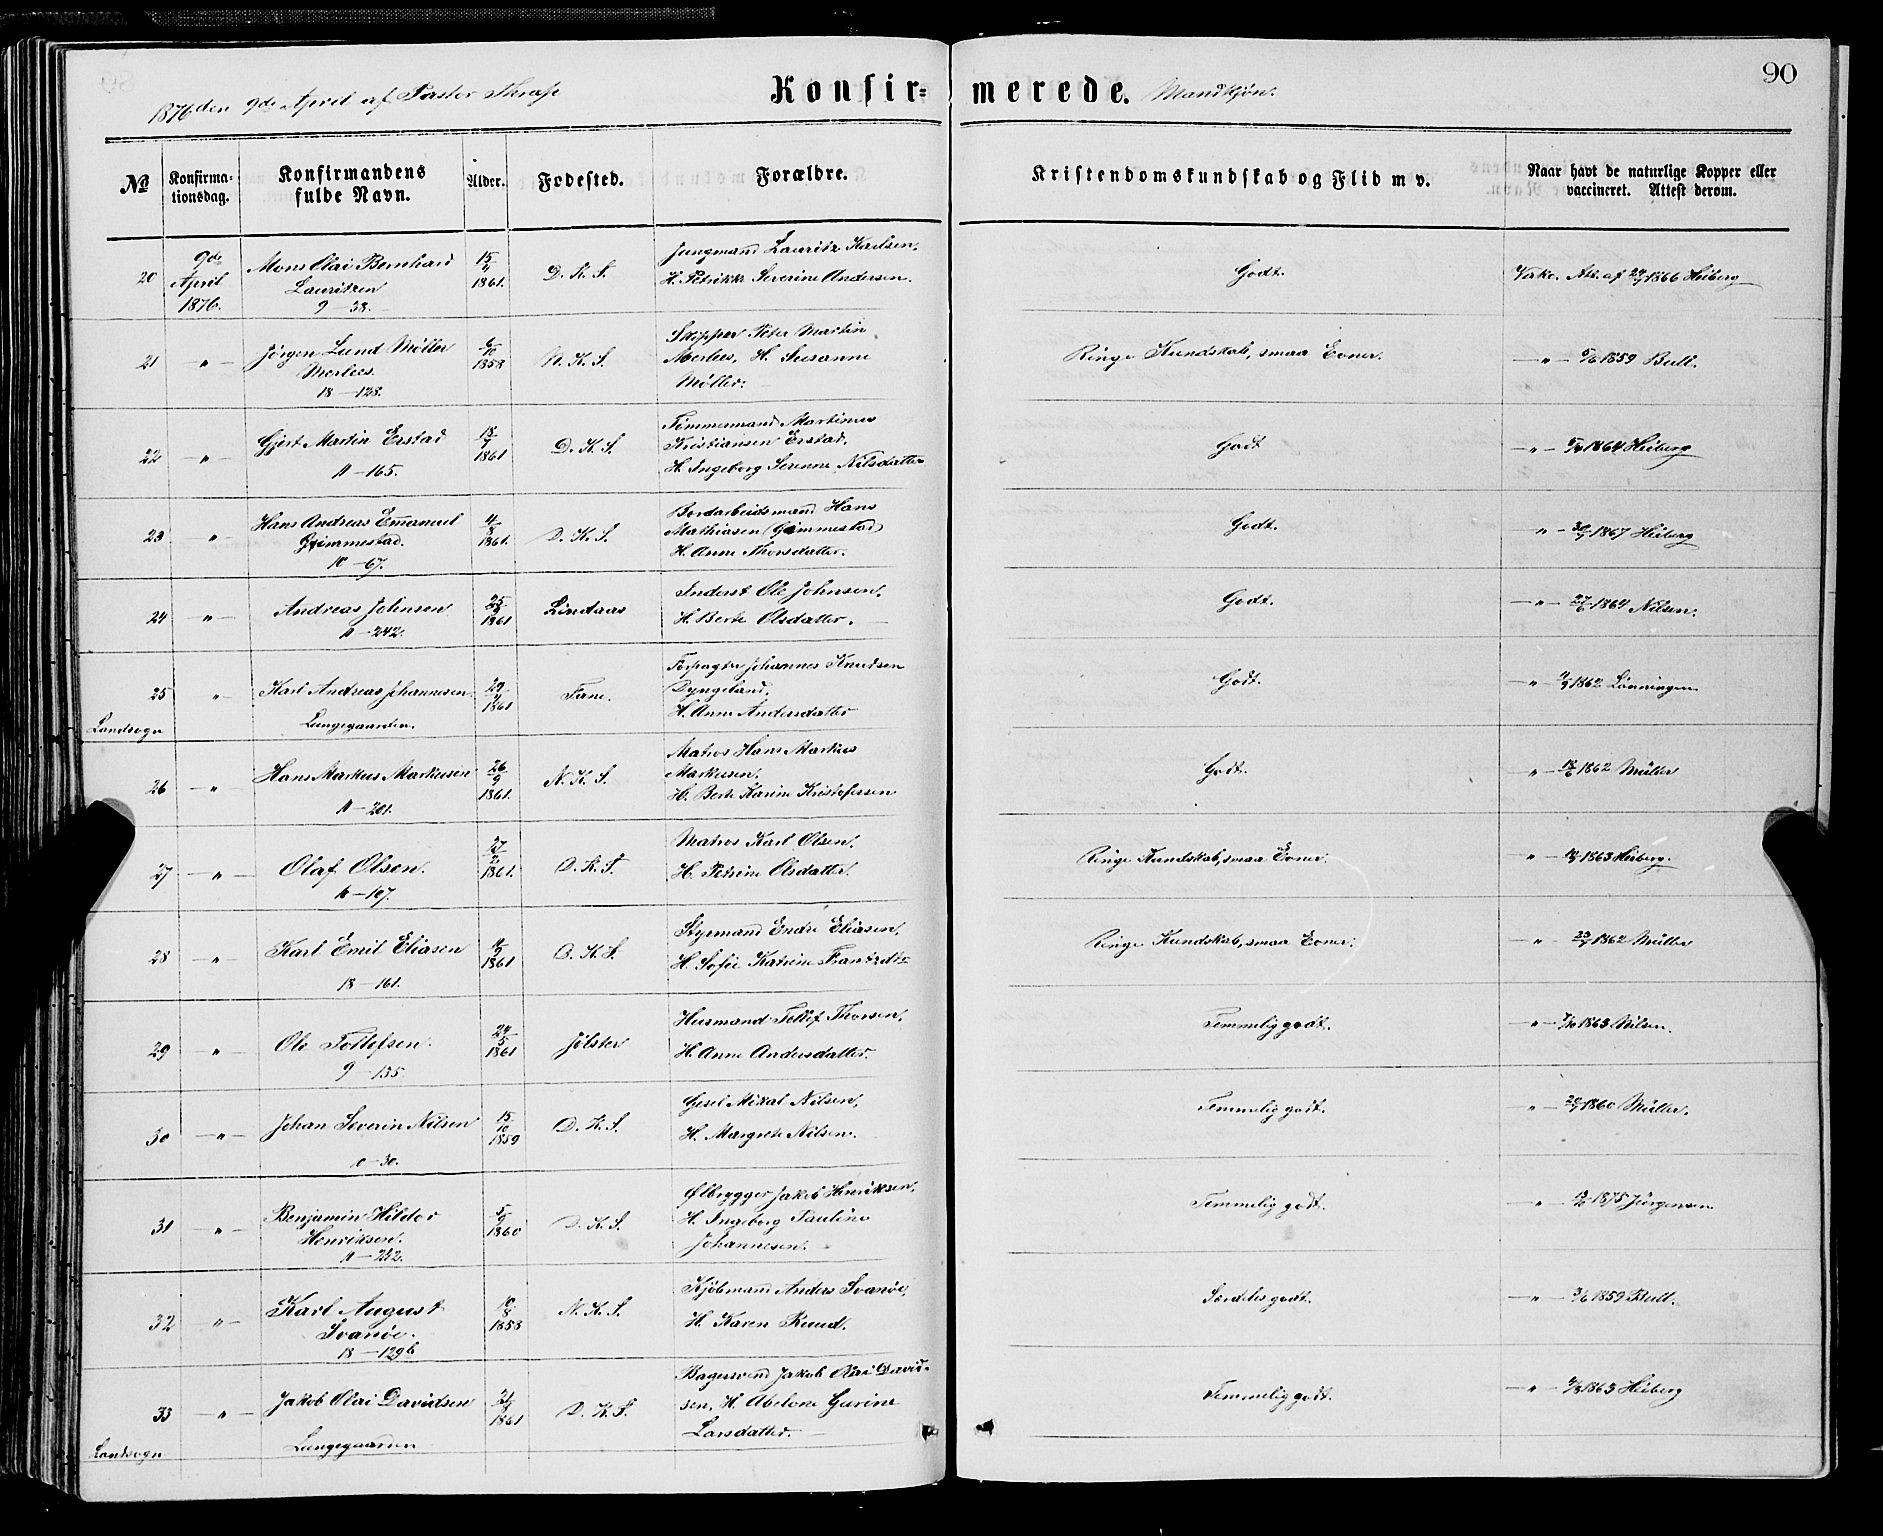 90
1876 den 9de April af Pastor Thrap
Konfir= merede. Mandkjøn.
No
Konfirma-
tionsdag.
Konfirmandens
fulde Navn.
Alder.
Fødested.
Forældre.
Kristendomskundskab og Flid m v.
Naar havt de naturlige Kopper eller
vaccineret. Attest derom.
20 9de April 1876. Mons Olai Bernhard Lauritzen 9-38. 15/11 1861. D. K. S.
Jungmand Lauritz Karlsen,
H. Petrikke Severine Andersen.
Godt. Vakc. Att. af 1866 Heiberg
21 -"- Jørgen Lund Møller Merlees. 18-128. 6/10 1858 N. K. S.
Skipper Peter Martin
Merlees, H. Susanne
Møller.
Ringe Kundskab, smaa Evner. -"- 1859 Bull.
22 -"- Gjert Martin Erstad 11-165. 18/7 1861 D. K. S.
Tømmermand Martinus
Kristiansen Erstad.
H. Ingeborg Serenne Nilsdatter
Godt -"- 1864 Heiberg
23 -"- Hans Andreas Emanuel Gjimmestad. 10-67. 4/8 1861. D. K. S.
Bordarbeidsmand Hans
Mathiasen (Gimmestad)
H. Anne Thorsdatter.
Godt. -"- 1867 Heiberg
24 -"- Andreas Johnsen 11-242. 1861 Lindaas
Inderst Ole Johnsen,
H. Berte Olsdatter.
Godt. -"- 1864 Nilsen.
25 -"- Karl Andreas Johannesen 1861 Fane.
Landsogn Lungegaarden.
Forpagter Johannes Knudsen
Dyngeland.
H. Anne Andersdatter
Godt. -"- 1862 Lønningen
26 -"- Hans Markus Markusen 11-201. 26/9 1861. N. K. S.
Matros Hans Markus
Markusen.
H. Berte Karine Kristofersen
Godt. -"- 1862 Müller
27 -"- Olaf Olsen. 10-107. 27/2 1861. D. K. S.
Matros Karl Olsen.
H. Petrine Olsdatter.
Ringe Kundskab, smaa Evner. -"- 1863 Heiberg.
28 -"- Karl Emil Eliasen 18-161. 1861 D. K. S.
Styrmand Endre Eliasen,
H. Sofie Katrine
Ringe Kundskab, smaa Evner. -"- 1862 Müller
29 -"- Ole Tollefsen. 9-155 24/5 1861 Jølster
Husmand Tollef Thorsen,
H. Anne Andersdatter.
Temmelig godt. -"- 1863 Nilsen.
30 -"- Johan Severin Nilsen 15/10 1859 D. K. S.
Gesel Mikal Nilsen,
H. Margrete Nilsen.
Temmelig godt. -"- 1860 Müller.
31 -"- Benjamin Hildor Henriksen. 11-242. 5/9 1860 D. K. S.
Ølbrygger Jakob Henriksen,
H. Ingeborg Pauline
Johannesen.
Temmelig godt. -"- 1875 Jørgensen
32 -"- Karl August Svanøe. 18-129b 10/8 1858 N. K. S.
Kjøbmand Anders Svanøe,
H. Karen Ruud.
Særdeles godt. -"- 1859 Bull.
33 -"- Jakob Olai Davidsen 1861 D. K. S.
Landsogn Lungegaarden
Bagersvend Jakob Olai David-
sen, H. Abelone Gurine
Larsdatter.
Temmelig godt. -"- 1863 Heiberg